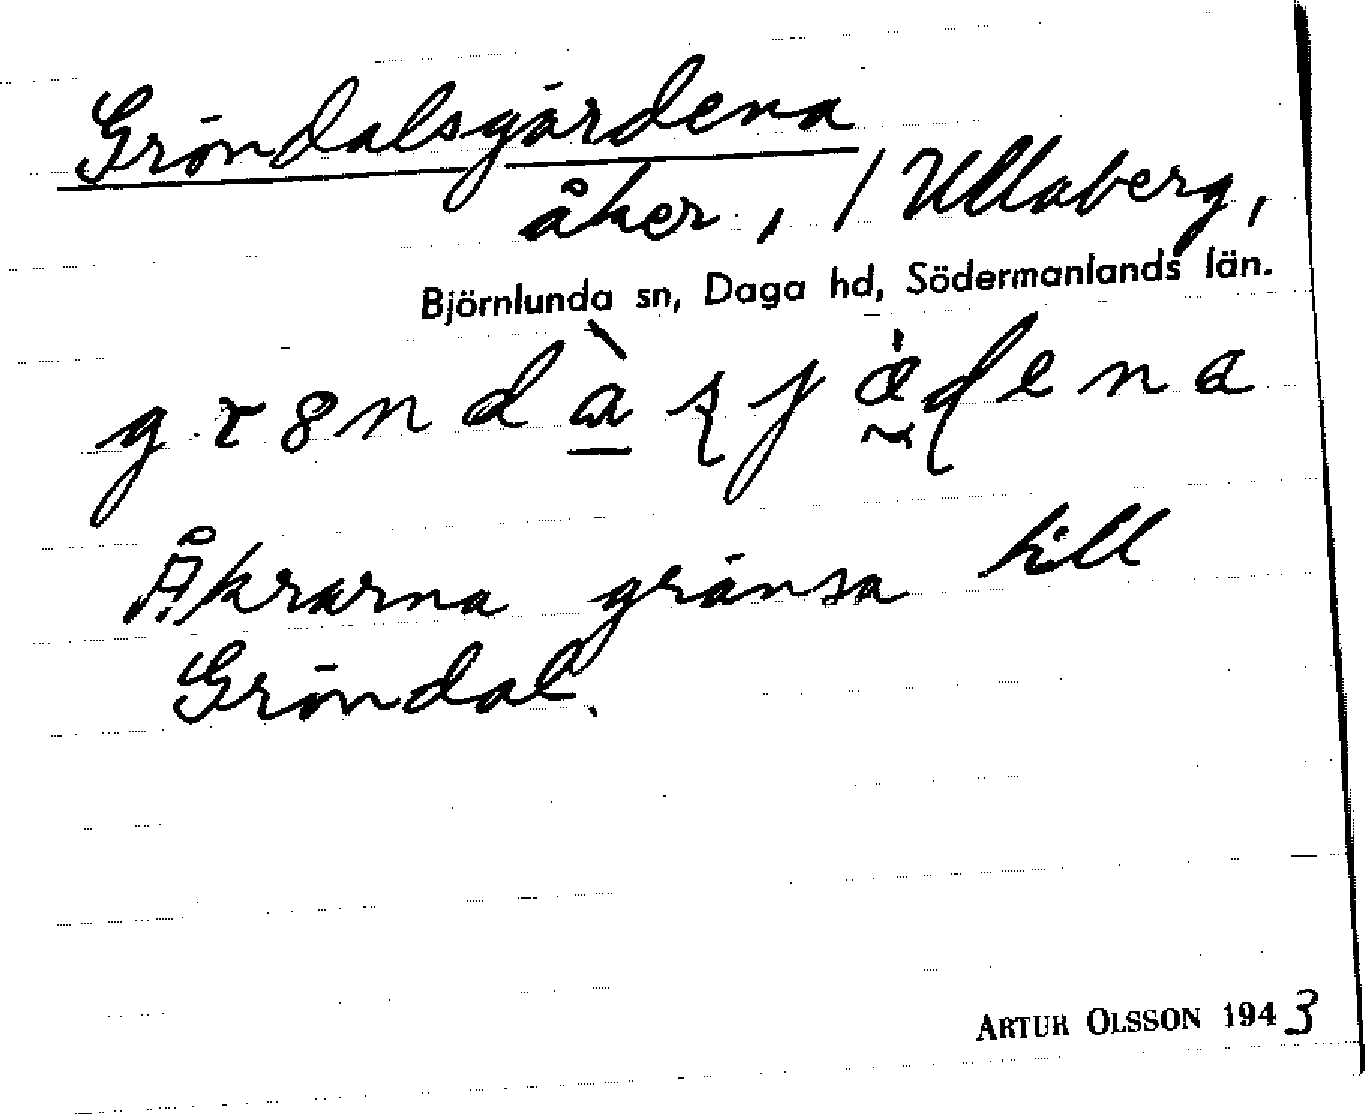 Gröndalsgärdena
åker, 1 Ullaberg,
Björnlunda sn, Daga hd, Södermanlands län.
Åkrarna gränsa till
Gröndal.
ARTUR OLSSON 1943